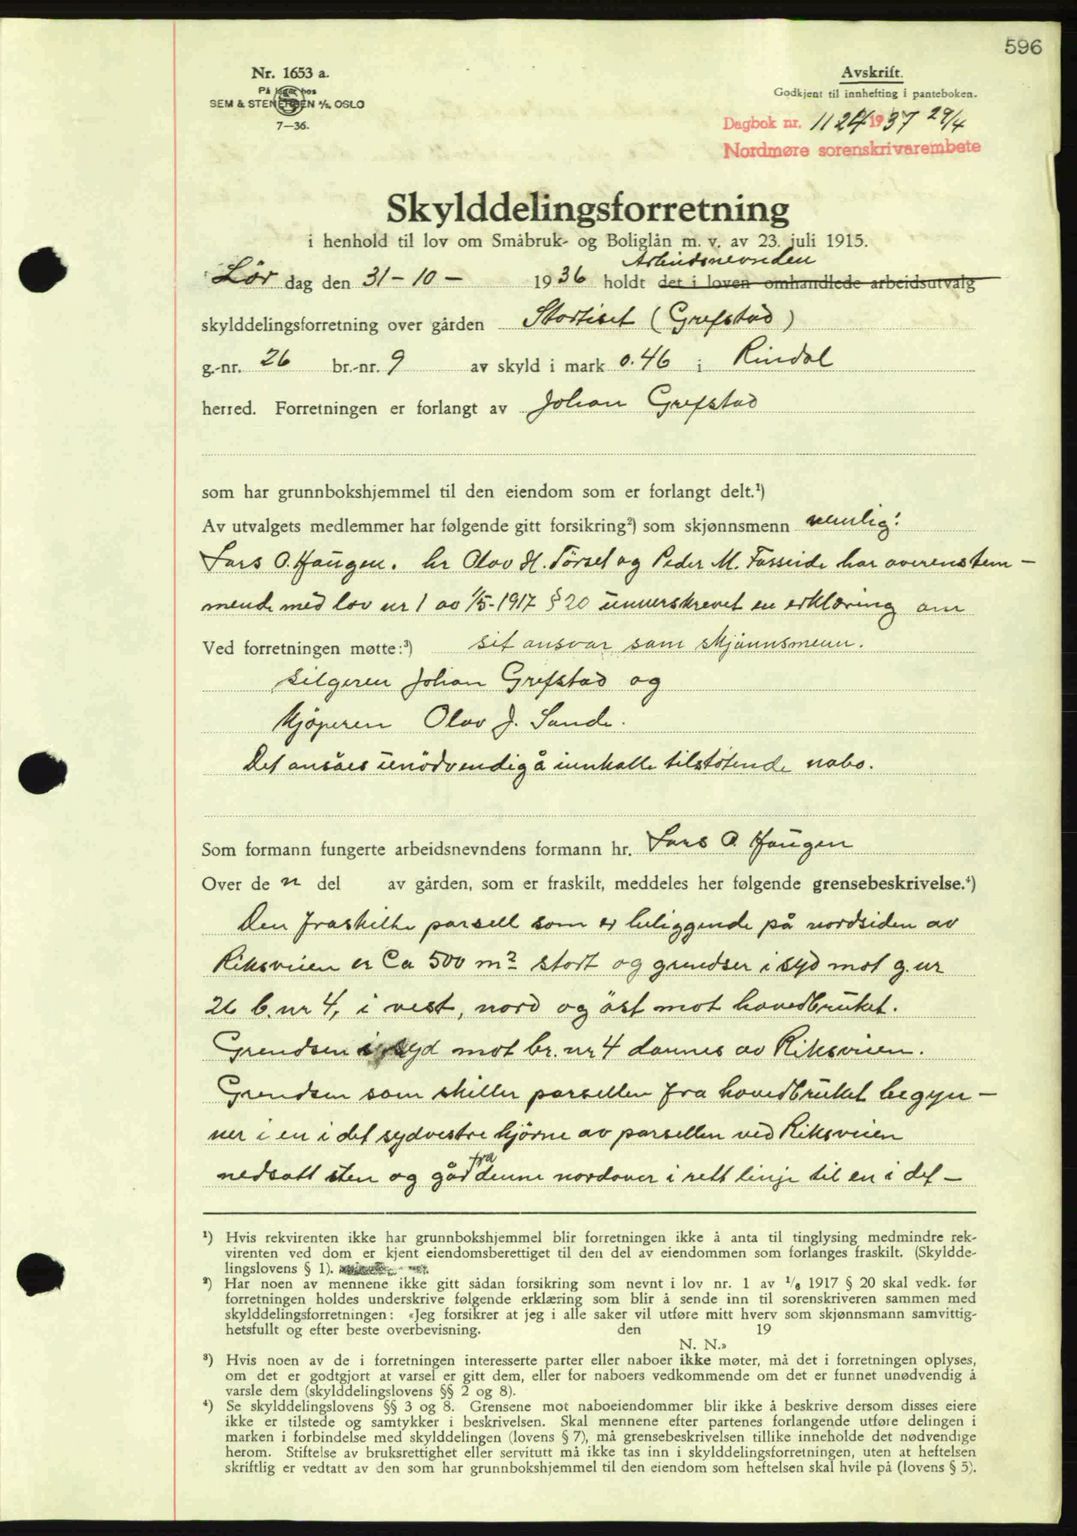 596
Nr. 1653 a.
På lager hos
SEM & STENERSEN A/S, OSLO
7—36.
Avskrift.
Godkjent til innhefting i panteboken.
Dagbok nr. 1124 1937 29/4
Nordmøre sorenskrivarembete
Skylddelingsforretning
i henhold til lov om Småbruk- og Boliglån m. v. av 23. juli 1915.
Arbeidsnevnden
Lör dag den 31-10- 1936 holdt det i loven omhandlede arbeidsutvalg
skylddelingsforretning over gården Stortiset (Grefstad)
g.-nr. 26 br.-nr. 9 av skyld i mark 0.46 i Rindal
herred. Forretningen er forlangt av Johan Grefstad
som har grunnbokshjemmel til den eiendom som er forlangt delt.¹)
Av utvalgets medlemmer har følgende gitt forsikring²) som skjønnsmenn nemlig:
Lars O. Haugen. hr Olav H. Törset og Peder M. Fasseide har averenstem-
mende med lov nr 1 av 1/5-1917 § 20 underskrevet en erklæring om
Ved forretningen møtte:³) sit ansvar som skjönnsmenn.
selgeren Johan Grefstad og
kjöperen Olav J. Sande.
Det ansåes unödvendig å innkalle tilstötende nabo.
Som formann fungerte arbeidsnevndens formann hr. Lars O. Haugen
Over de n del av gården, som er fraskilt, meddeles her følgende grensebeskrivelse.⁴)
Den fraskilte parsell som er beliggende på nordsiden av
Riksveien er Ca 500 m² stort og grendser i syd mot g. nr
26 b. nr 4, i vest, nord og öst mot hovedbruket.
Grendsen i syd mot br. nr 4 dannes av Riksveien.
Grendsen som skiller parsellen fra hovedbruket begyn-
ner i en i det sydvestre hjörne av parsellen ved Riksveien
nedsatt sten og går fra denne nordover i rett linje til en i det-
¹) Hvis rekvirenten ikke har grunnbokshjemmel blir forretningen ikke å anta til tinglysing medmindre rek-
virenten ved dom er kjent eiendomsberettiget til den del av eiendommen som forlanges fraskilt. (Skyldde-
lingslovens § 1).
²) Har noen av mennene ikke gitt sådan forsikring som nevnt i lov nr. 1 av 1/6 1917 § 20 skal vedk. før
forretningen holdes underskrive følgende erklæring som blir å sende inn til sorenskriveren sammen med
skylddelingsforretningen: «Jeg forsikrer at jeg i alle saker vil utføre mitt hverv som skjønnsmann samvittig-
hetsfullt og efter beste overbevisning. den 19
N. N.»
³) Hvis noen av de i forretningen interesserte parter eller naboer ikke møter, må det i forretningen oplyses,
om det er godtgjort at varsel er gitt dem, eller for naboers vedkommende om det er funnet unødvendig å
varsle dem (skylddelingslovens §§ 2 og 8).
⁴) Se skylddelingslovens §§ 3 og 8. Grensene mot naboeiendommer blir ikke å beskrive dersom disses eiere
ikke er tilstede og samtykker i beskrivelsen. Skal mennene efter partenes forlangende utføre delingen i
marken i forbindelse med skylddelingen (lovens § 7), må grensebeskrivelsen tillike inneholde det nødvendige
herom. Stiftelse av bruksrettighet eller servitutt må ikke tas inn i skylddelingsforretningen, uten at heftelsen
skriftlig er vedtatt av den som har grunnbokshjemmel til den eiendom som heftelsen skal hvile på (lovens § 5).